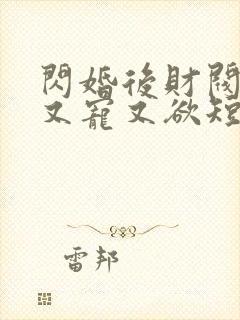 閃婚後財閥
又寵又欲短
雷邦